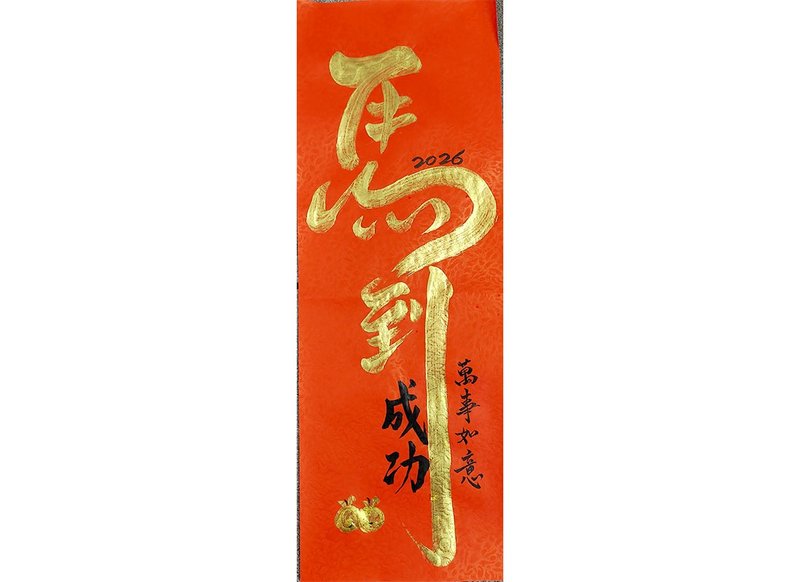 馬到
成功
2026
萬事如意